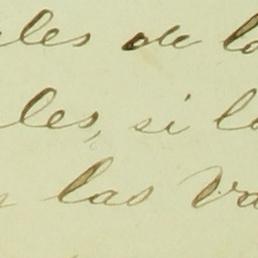 les de lo
les, si lo
las Va